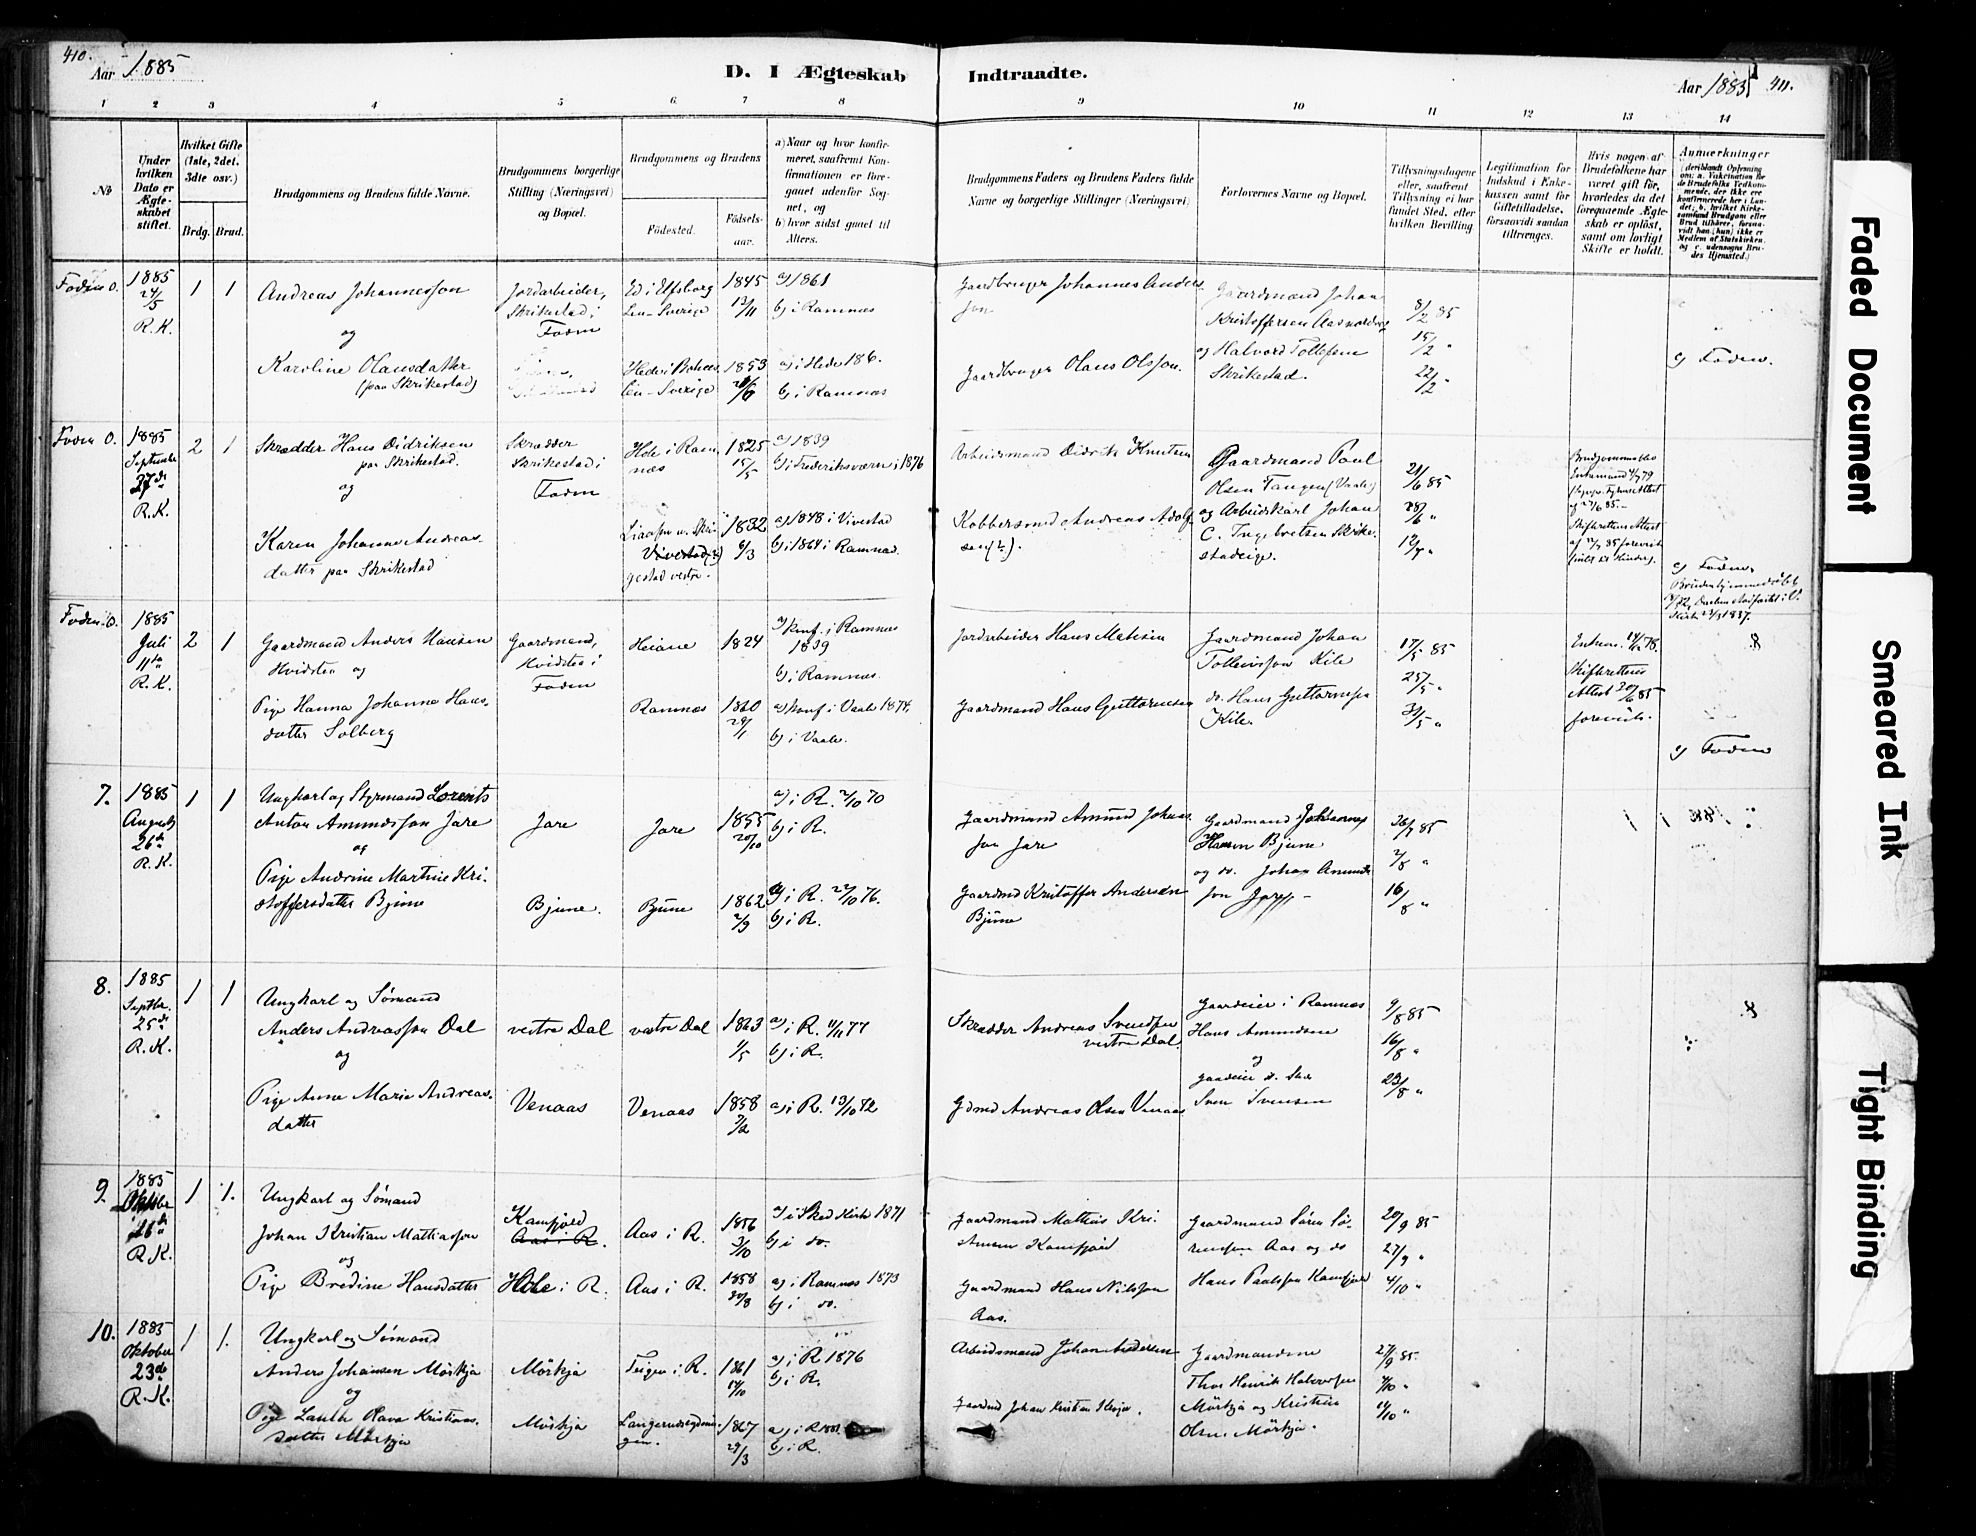 410.
Aar 1885
D. I Ægteskab
Indtraadte.
Aar 1885
411.
1 2 3 4 5 6 7 8 9 10 11 12 13 14
No
Under hvilken Dato er Ægteskabet stiftet.
Hvilket Gifte (1ste, 2det, 3die osv.)
Brdg. Brud.
Brudgommens og Brudens fulde Navne.
Brudgommens borgerlige Stilling (Næringsvei) og Bopæl.
Brudgommens og Brudens
Fødested.
Fødselsaar.
a) Naar og hvor konfirmeret, saafremt Konfirmationen er foregaaet udenfor Sognet, og
b) hvor sidst gaaet til Alters.
Brudgommens Faders og Brudens Faders fulde Navne og borgerlige Stillinger (Næringsvei)
Forlovernes Navne og Bopæl.
Tillysningsdagene eller, saafremt Tillysning ei har fundet Sted, efter hvilken Bevilling
Legitimation for Indskud i Enkekassen samt for Giftetilladelse, forsaavidt saadan tiltrænges.
Hvis nogen af Brudefolkene har været gift før, hvorledes da det foregaaende Ægteskab er opløst, samt om lovligt Skifte er holdt.
Anmerkninger
Foden O.
1885
24/5
R.K.
1 1
Andreas Johannesson
og
Karoline Olausdatter
(paa Skrikestad)
Jordarbeider,
Skrikestad i
Foden
Ed i Elfsborg
Len-Sverige
Hede i Bohus
Len-Sverige
1845
13/11
1853
a) 1861
b) i Ramnæs
a) i Hede 186.
b) i Ramnæs
Gaardbruger Johannes Anders
son
Gaardbruger Olaus Olsson.
Gaardmand Johan
Kristoffersen
og Halvord Tollefsen
Skrikestad.
8/2 85
15/2 "
22/2 "
c) Foden.
Foden O.
1885
September
27de
R.K.
2 1
Skrædder Hans Didriksen
paa Skrikestad.
og
Karen Johanne Andreas-
datter paa Skrikestad
Skrædder
Skrikestad i
Foden
Hole i Ram
næs
Vivestad
gestad vestre.
1825
15/5
1832
6/3
a) 1839
b) i Frederiksværn i 1876
a) 1848 i Vivestad
b) i 1864 i Ramnæs.
Arbeidsmand Didrik Knutsen
Kobbersmed Andreas Adolf
sen (?).
Gaardmand Paul
Olsen Fangen (Vaale)
og Arbeidskarl Johan
C. Ingebretsen Skrike-
stadeige.
21/6 85
28/6 "
12/7 "
Brudgommen
Enkemand
Skifterettens Attest
c) Foden.
Foden O.
1885
Juli
11te
R.K.
2 1
Gaardmand Anders Hansen
Hvidsten og
Pige Hanna Johanne Hans-
datter Solberg
Gaardmand,
Hvidsten i
Foden
Heiane
Ramnæs
1824
1860
29/1
a) konf. i Ramnæs
1839
b) i Ramnæs.
a) konf i Vaale 1874.
b) i Vaale.
Jordarbeider Hans Matisen
Gaardmand Hans Guttormsen
Gaardmand Johan
Tollevsson Kile
do. Hans Guttormsen
Kile.
17/5 85
25/5 "
31/5 "
Enkem. 14/12 78.
Skifterettens
Attest 30/6 85
forevist.
c) Foden
7.
1885
August
26de
R.K.
1 1
Ungkarl og Styrmand Lorents
Anton Amundsson Jare
og
Pige Andrine Martine Kri-
stoffersdatter Bjune
Jare
Bjune.
Jare
Bjune
1855
20/10
1862
2/9
a) i R. 2/10 70
b) i R.
a) i R. 22/10 76.
b) i R.
Gaardmand Amund Johans
son Jare
Gaardmd Kristoffer Andersen
Bjune
Gaardmand Johannes
Hansen Bjune
og do. Johan Amunds
son Jare
26/7 85
2/8 "
16/8 "
8.
1885
Septbr.
25de
R.K.
1 1
Ungkarl og Sømand
Anders Andreasson Dal
og
Pige Anne Marie Andreas-
datter
vestre Dal
Venaas
vestre Dal
Venaas
1863
1/5
1858
3/2
a) i R. 4/11 77
b) i R.
a) i R. 13/10 72
Skrædder Andreas Svendsen
vestre Dal.
Gdmd Andreas Olsen Venaas
Gaardeier i Ramnæs
Hans Amundsen
og
gaardeier
Sven Svensen
9/8 85
16/8 "
23/8 "
9.
1885
Oktober
16de
R.K.
1 1.
Ungkarl og Sømand
Johan Kristian Mattiasson
og
Pige Bredine Hansdatter
Kamfjord
Aas i R.
Hole i R.
Aas i R.
Aas i R.
1856
3/10
1858
30/8
a) i Sked Kirke 1871
b) i do.
a) i Ramnæs 1873
b) i do.
Gaardmand Mathias Kri-
stensen Kamfjord
Gaardmand Hans Nilsson
Aas.
Gaardmand Søren Sø-
rensen Aas og do
Hans Paulsson Kamfjord
20/9 85
27/9 "
4/10 "
10.
1885
Oktober
23de
R.K.
1 1.
Ungkarl og Sømand
Anders Johansen Mörkja
og
Pige Lauth Rava Kristians-
datter Mörkja
Mörkja
Mörkja
Teigen i R.
1861
14/10
1867
29/3
a) i R 1876
b) i R.
a) i R
b) i R.
Arbeidsmand Johan Andersen
Gaardmd Johan Kristian
Gaardmændene
Thor Henrik Halvorsen
Mörkja og Kristian
Olsen Mörkja.
27/9 85.
4/10 "
11/10 "
Faded Document
Smeared Ink
Tight Binding